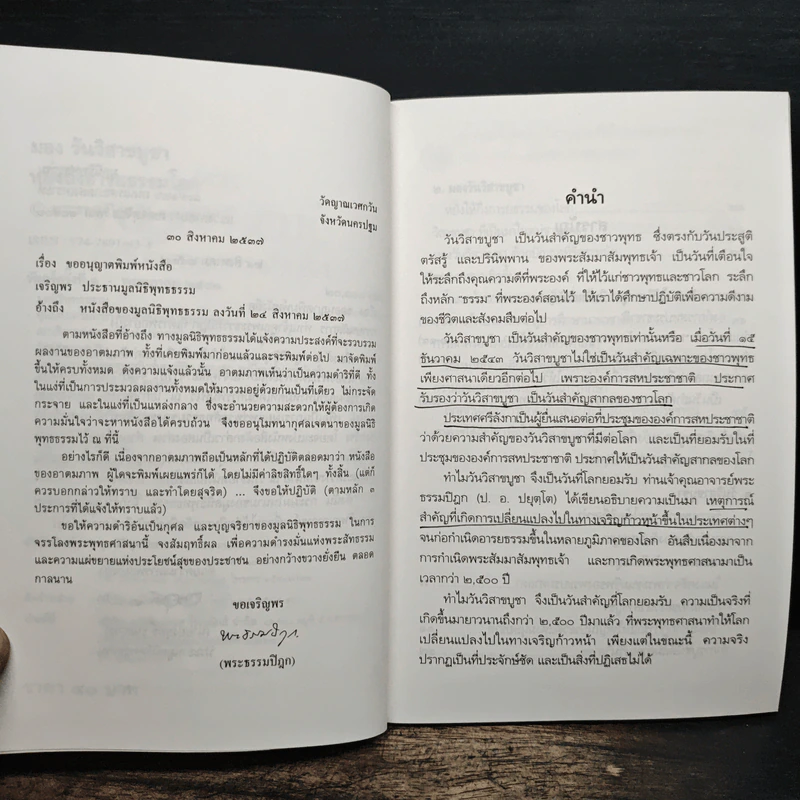 วัดญาณเวศกวัน
จังหวัดนครปฐม
๓๐ สิงหาคม ๒๕๓๗
เรื่อง ขออนุญาตพิมพ์หนังสือ
เจริญพร ประธานมูลนิธิพุทธธรรม
อ้างถึง หนังสือของมูลนิธิพุทธธรรม ลงวันที่ ๒๔ สิงหาคม ๒๕๓๗
ตามหนังสือที่อ้างถึง ทางมูลนิธิพุทธธรรมได้แจ้งความประสงค์ที่จะรวบรวม
ผลงานของอาตมภาพ ทั้งที่เคยพิมพ์มาก่อนแล้วและจะพิมพ์ต่อไป มาจัดพิมพ์
ขึ้นให้ครบทั้งหมด ดังความแจ้งแล้วนั้น อาตมภาพเห็นว่าเป็นความดำริที่ดี ทั้ง
ในแง่ที่เป็นการประมวลผลงานทั้งหมดให้มารวมอยู่ด้วยกันเป็นที่เดียว ไม่กระจัด
กระจาย และในแง่ที่เป็นแหล่งกลาง ซึ่งจะอำนวยความสะดวกให้ผู้ต้องการเกิด
ความมั่นใจว่าจะหาหนังสือได้ครบถ้วน จึงขออนุโมทนากุศลเจตนาของมูลนิธิ
พุทธธรรมไว้ ณ ที่นี้
อย่างไรก็ดี เนื่องจากอาตมภาพถือเป็นหลักที่ได้ปฏิบัติตลอดมาว่า หนังสือ
ของอาตมภาพ ผู้ใดจะพิมพ์เผยแพร่ก็ได้ โดยไม่มีค่าลิขสิทธิ์ใดๆ ทั้งสิ้น (แต่ก็
ควรบอกกล่าวให้ทราบ และทำโดยสุจริต) ... จึงขอให้ปฏิบัติ (ตามหลัก ๓
ประการที่ได้แจ้งให้ทราบแล้ว)
ขอให้ความดำริอันเป็นกุศล และบุญจริยาของมูลนิธิพุทธธรรม ในการ
จรรโลงพระพุทธศาสนานี้ จงสัมฤทธิ์ผล เพื่อความดำรงมั่นแห่งพระสัทธรรม
และความแผ่ขยายแห่งประโยชน์สุขของประชาชน อย่างกว้างขวางยั่งยืน ตลอด
กาลนาน
ขอเจริญพร
พระธรรมปิฎก
(พระธรรมปิฎก)
คำนำ
วันวิสาขบูชา เป็นวันสำคัญของชาวพุทธ ซึ่งตรงกับวันประสูติ
ตรัสรู้ และปรินิพพาน ของพระสัมมาสัมพุทธเจ้า เป็นวันที่เตือนใจ
ให้ระลึกถึงคุณความดีที่พระองค์ ที่ให้ไว้แก่ชาวพุทธและชาวโลก ระลึก
ถึงหลัก “ธรรม” ที่พระองค์สอนไว้ ให้เราได้ศึกษาปฏิบัติเพื่อความดีงาม
ของชีวิตและสังคมสืบต่อไป
วันวิสาขบูชา เป็นวันสำคัญของชาวพุทธเท่านั้นหรือ เมื่อวันที่ ๑๕
ธันวาคม ๒๕๔๓ วันวิสาขบูชาไม่ใช่เป็นวันสำคัญเฉพาะของชาวพุทธ
เพียงศาสนาเดียวอีกต่อไป เพราะองค์การสหประชาชาติ ประกาศ
รับรองว่าวันวิสาขบูชา เป็นวันสำคัญสากลของชาวโลก
ประเทศศรีลังกาเป็นผู้ยื่นเสนอต่อที่ประชุมขององค์การสหประชาชาติ
ว่าด้วยความสำคัญของวันวิสาขบูชาที่มีต่อโลก และเป็นที่ยอมรับในที่
ประชุมขององค์การสหประชาชาติ ประกาศให้เป็นวันสำคัญสากลของโลก
ทำไมวันวิสาขบูชา จึงเป็นวันที่โลกยอมรับ ท่านเจ้าคุณอาจารย์พระ
ธรรมปิฎก (ป. อ. ปยุตฺโต) ได้เขียนอธิบายความเป็นมา เหตุการณ์
สำคัญที่เกิดการเปลี่ยนแปลงไปในทางเจริญก้าวหน้าขึ้นในประเทศต่างๆ
จนก่อกำเนิดอารยธรรมขึ้นในหลายภูมิภาคของโลก อันสืบเนื่องมาจาก
การกำเนิดพระสัมมาสัมพุทธเจ้า และการเกิดพระพุทธศาสนามาเป็น
เวลากว่า ๒,๕๐๐ ปี
ทำไมวันวิสาขบูชา จึงเป็นวันสำคัญที่โลกยอมรับ ความเป็นจริงที่
เกิดขึ้นมายาวนานถึงกว่า ๒,๕๐๐ ปีมาแล้ว ที่พระพุทธศาสนาทำให้โลก
เปลี่ยนแปลงไปในทางเจริญก้าวหน้า เพียงแต่ในขณะนี้ ความจริง
ปรากฏเป็นที่ประจักษ์ชัด และเป็นสิ่งที่ปฏิเสธไม่ได้